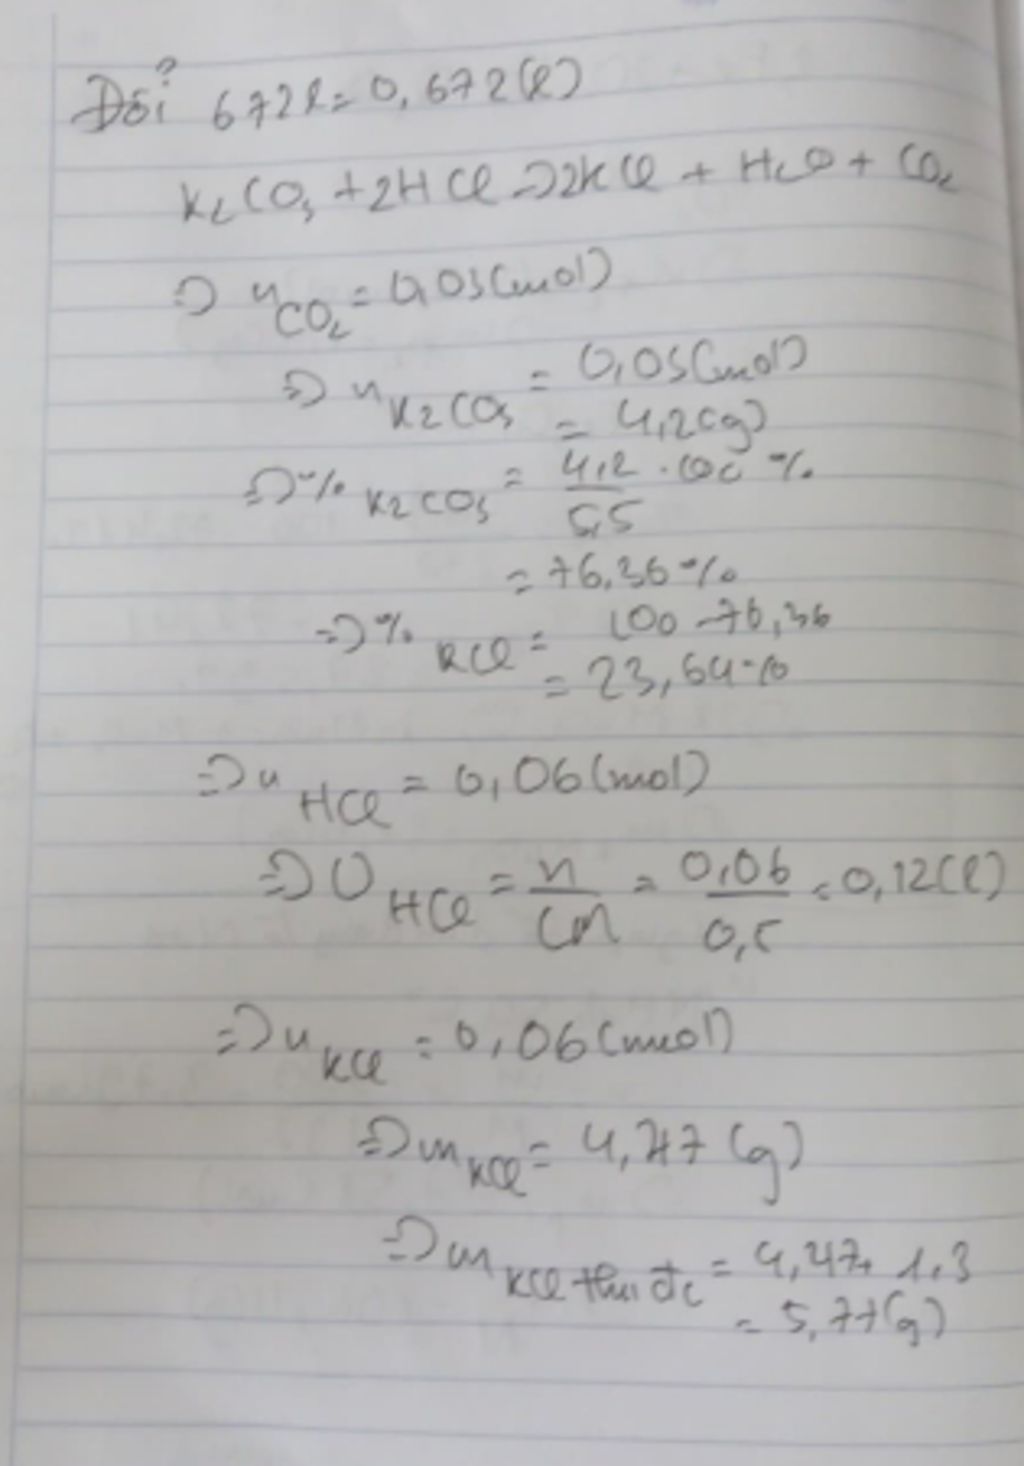 Đổi 672l = 0,672(l)
K2CO3 + 2HCl => 2KCl + H2O + CO2
=> n CO2 = 0,03(mol)
=> n K2CO3 = 0,03(mol)
= 4,2(g)
=> % K2CO3 = 4,2 . 100 % / 5,5
= 76,36%
=> % KCl = 100 - 76,36
= 23,64%
=> n HCl = 0,06(mol)
=> V HCl = n / CM = 0,06 / 0,5 = 0,12(l)
=> n KCl = 0,06(mol)
=> m KCl = 4,47(g)
=> m KCl thu đc = 4,47 + 1,3
= 5,77(g)